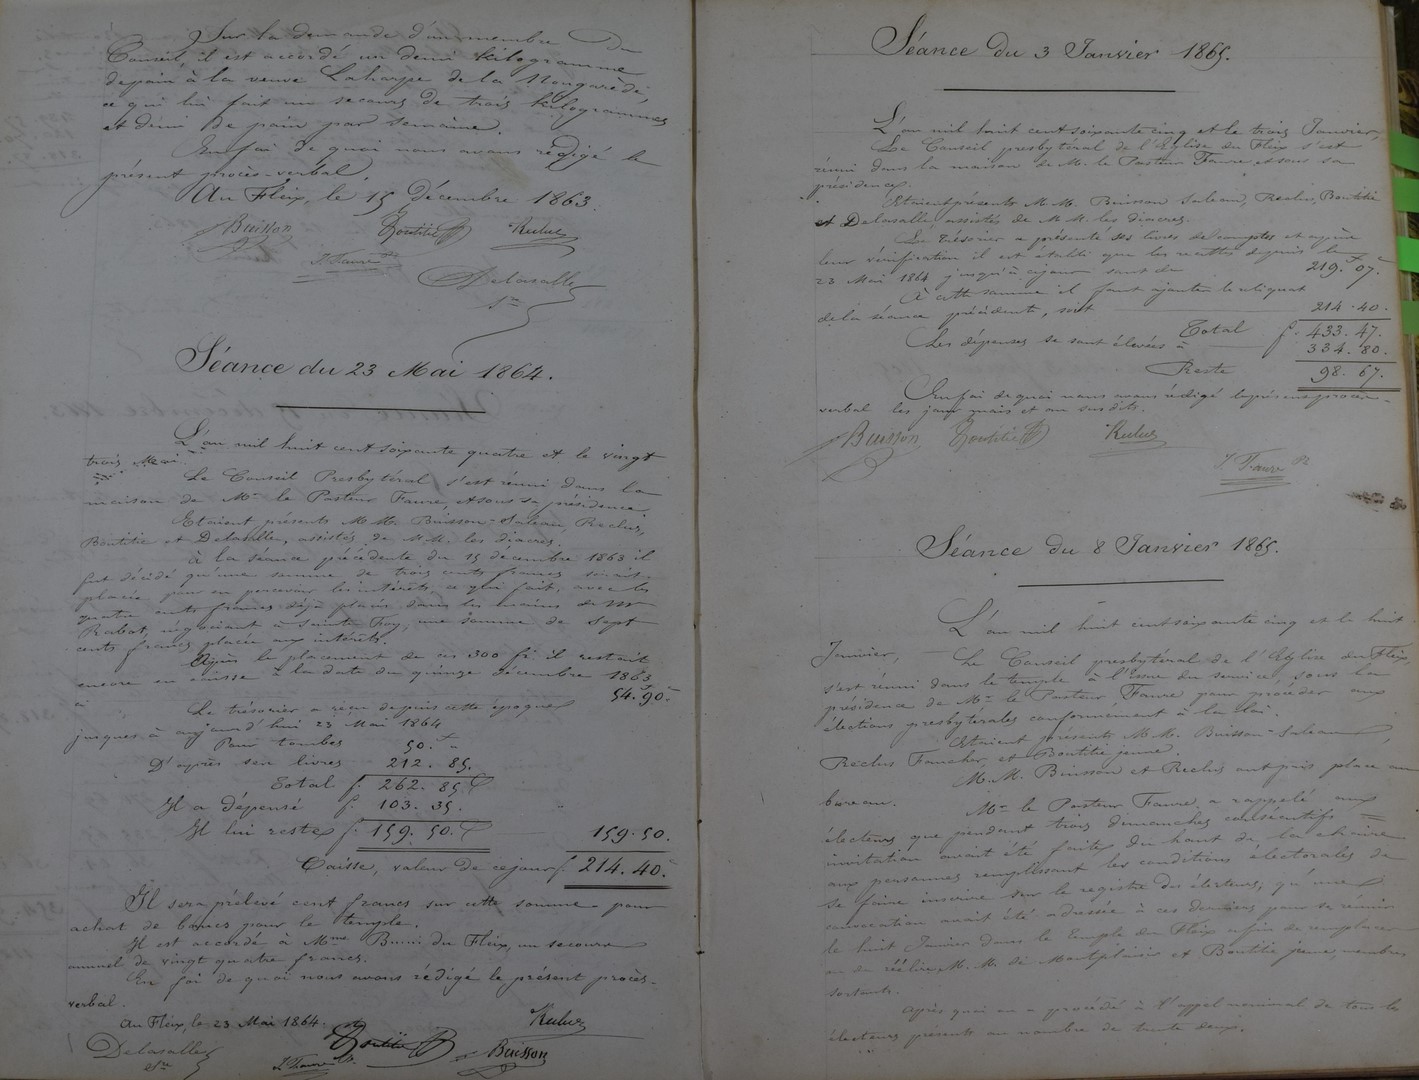 Sur la demande d'un membre Du
Conseil, il est accordé un demi kilogramme
de pain à la veuve Laharpe de la Nougarède,
ce qui lui fait un secours de trois kilogrammes
et demi de pain par semaine.
En foi de quoi nous avons rédigé le
présent procès-verbal.
Au Fleix, le 15 Décembre 1863.
Buisson Boutitie Reclus
J. Faure Pr
Delasalle
Sre
Séance du 23 Mai 1864.
L'an mil huit cent soixante quatre et le vingt
trois Mai
Le Conseil Presbytéral s'est réuni dans la
maison de Mr le Pasteur Faure, et sous sa présidence.
Etaient présents M. M. Buisson-Saleau, Reclus,
Boutitie et Delasalle, assistés de M. M. les diacres.
à la séance précédente du 15 décembre 1863 il
fut décidé qu'une somme de trois cents francs serait
placée pour en percevoir les intérêts, ce qui fait, avec les
quatre cents francs déjà placés dans les mains de Mr
Rabot, négociant à Sainte Foy, une somme de sept
cents francs placée aux intérêts.
Après le placement de ces 300 fr. il restait
encore en caisse à la date du quinze décembre 1863
54. 90.
Le trésorier a reçu depuis cette époque
jusques à aujourd'hui 23 Mai 1864
Pour tombes 50. "
D'après son livre 212. 85.
Total f. 262. 85.
Il a dépensé f. 103. 35.
Il lui reste f. 159. 50. 159. 50.
Caisse, valeur de ce jour f. 214. 40.
Il sera prélevé cent francs sur cette somme pour
achat de bancs pour le temple.
Il est accordé à Mme B..... du Fleix, un secours
annuel de vingt quatre francs.
En foi de quoi nous avons rédigé le présent procès-
verbal.
Au Fleix, le 23 Mai 1864.
Reclus
Delasalle Sre J. Faure Pr. Boutitie Buisson
Séance du 3 Janvier 1865.
L'an mil huit cent soixante cinq et le trois Janvier,
Le Conseil presbytéral de l'Eglise du Fleix s'est
réuni dans la maison de M. le Pasteur Faure et sous sa
présidence.
Etaient présents M. M. Buisson Saleau, Reclus, Boutitie
et Delasalle, assistés de M. M. les diacres.
Le Trésorier a présenté ses livres de comptes et après
leur vérification il est établi que les recettes depuis le
23 Mai 1864 jusqu'à ce jour sont de 219. 07.
A cette somme il faut ajouter le reliquat
de la séance précédente, soit 214. 40.
Total f. 433. 47.
Les dépenses se sont élevées à 334. 80.
Reste 98. 67.
En foi de quoi nous avons rédigé le présent procès-
verbal les jour, mois et an susdits.
Buisson Boutitie Reclus
J. Faure Pr
Séance du 8 Janvier 1865.
L'an mil huit cent soixante cinq et le huit
Janvier, Le Conseil presbytéral de l'Eglise du Fleix,
s'est réuni dans le temple à l'issue du service, sous la
présidence de Mr le Pasteur Faure pour procéder aux
élections presbytérales conformément à la loi.
Etaient présents M. M. Buisson-Saleau,
Reclus Faucher, et Boutitie jeune.
M. M. Buisson et Reclus ont pris place au
bureau.
Mr le Pasteur Faure a rappelé aux
électeurs que pendant trois dimanches consécutifs
invitation avait été faite du haut de la chaire
aux personnes remplissant les conditions électorales de
se faire inscrire sur le registre des électeurs; qu'une
convocation avait été adressée à ces derniers pour se réunir
le huit Janvier dans le temple du Fleix afin de remplacer
ou réélire M. M. de Montplaisir et Boutitie jeune, membres
sortants.
Après quoi on a procédé à l'appel nominal de tous les
électeurs présents au nombre de trente deux.